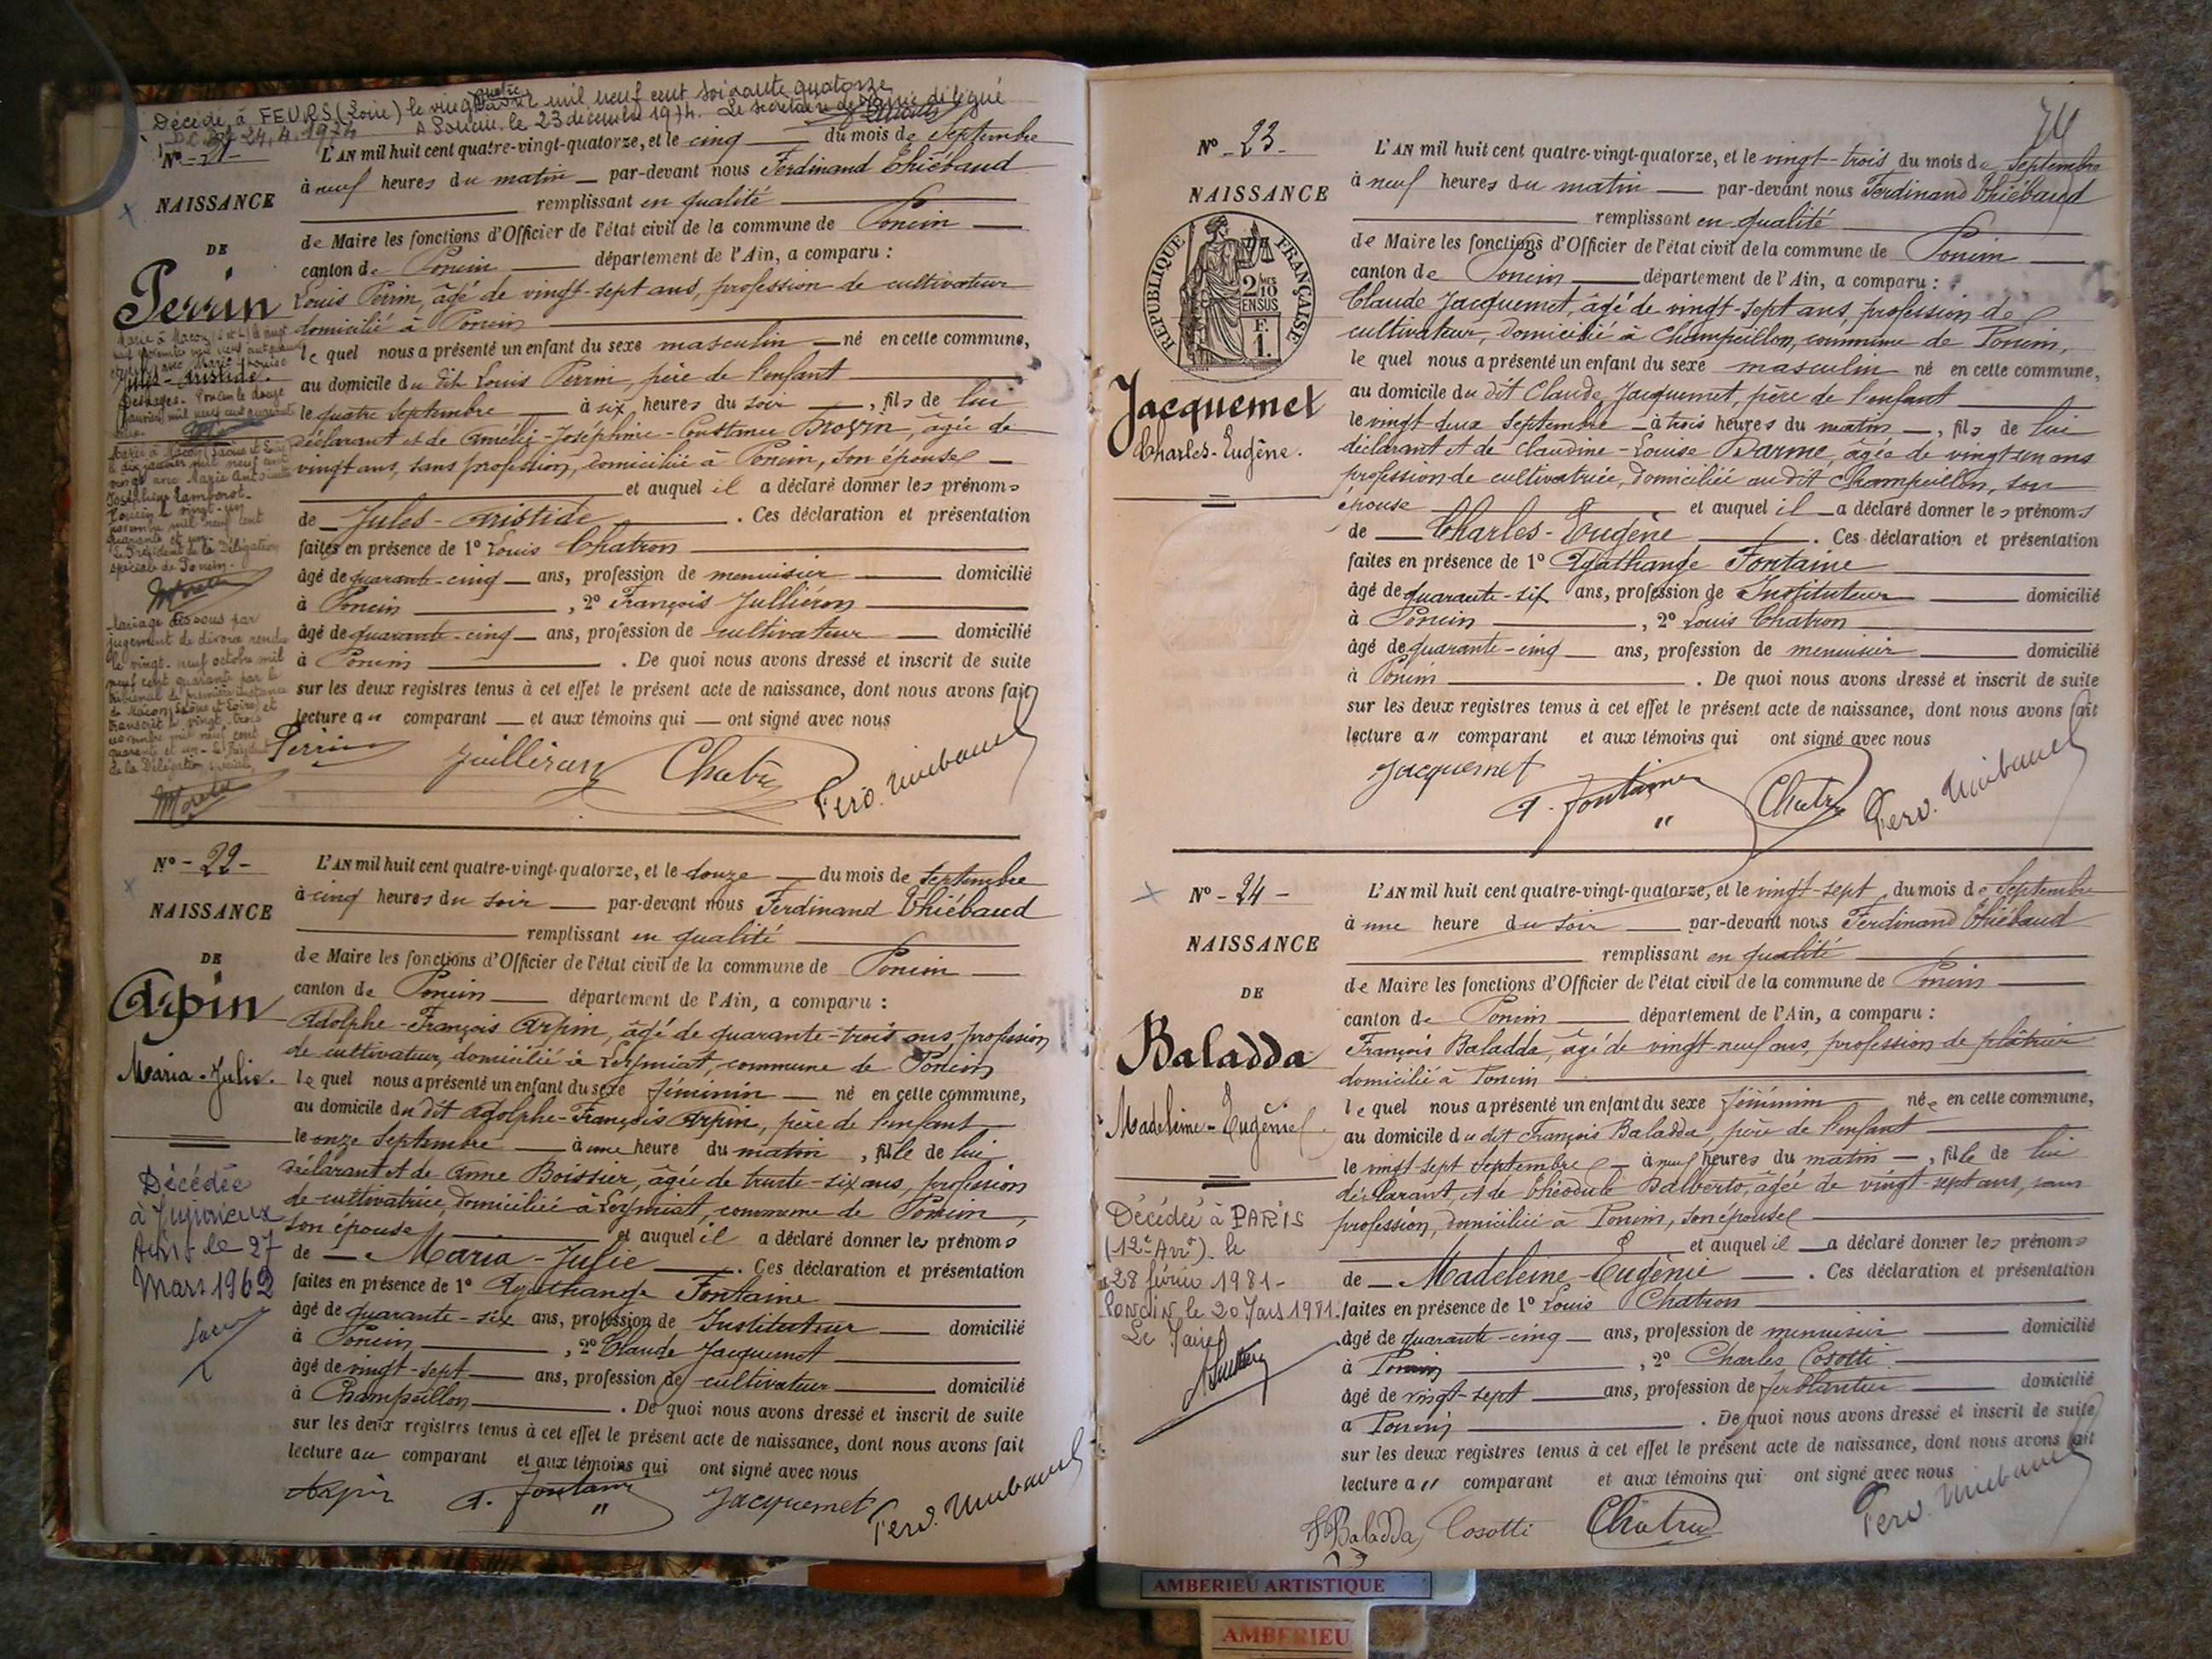 Décédé à FEURS (Loire) le vingt quatre avril mil neuf cent soixante quatorze
A Poncin le 23 décembre 1974. Le secrétaire de Mairie délégué
24.4.1974
N° - 21 -
NAISSANCE
DE
Perrin
Jules-Aristide.
L'AN mil huit cent quatre-vingt-quatorze, et le cinq du mois de Septembre
à neuf heures du matin par-devant nous Ferdinand Thiébaud
remplissant en qualité
de Maire les fonctions d'Officier de l'état civil de la commune de Poncin
canton de Poncin département de l'Ain, a comparu :
Louis Perrin, âgé de vingt-sept ans, profession de cultivateur
domicilié à Poncin
le quel nous a présenté un enfant du sexe masculin né en cette commune,
au domicile du dit Louis Perrin, père de l'enfant
le quatre Septembre à six heures du soir, fils de lui
déclarant et de Amélie-Joséphine-Constance âgée de
vingt ans, sans profession, domiciliée à Poncin, son épouse
et auquel il a déclaré donner les prénoms
de Jules-Aristide. Ces déclaration et présentation
faites en présence de 1° Louis Chatron
âgé de quarante-cinq ans, profession de menuisier domicilié
à Poncin, 2° François Julliéron
âgé de quarante-cinq ans, profession de cultivateur domicilié
à Poncin. De quoi nous avons dressé et inscrit de suite
sur les deux registres tenus à cet effet le présent acte de naissance, dont nous avons fait
lecture au comparant et aux témoins qui ont signé avec nous
Mariage dissous par
jugement de divorce rendu
le vingt-neuf octobre mil
neuf cent quarante par le
tribunal de première instance
de Macon (Saône et Loire) et
transcrit le vingt-trois
novembre mil neuf cent
quarante et un - Le Président
de la Délégation spéciale,
Perrin Juilleran Chatron Ferd. Thiebaud
N° - 22 -
NAISSANCE
DE
Arpin
Maria-Julie.
Décédée
à Jujurieux
Ain le 27
Mars 1962
L'AN mil huit cent quatre-vingt-quatorze, et le douze du mois de Septembre
à cinq heures du soir par-devant nous Ferdinand Thiébaud
remplissant en qualité
de Maire les fonctions d'Officier de l'état civil de la commune de Poncin
canton de Poncin département de l'Ain, a comparu :
Adolphe-François Arpin, âgé de quarante-trois ans, profession
de cultivateur, domicilié à Leymiat, commune de Poncin
le quel nous a présenté un enfant du sexe féminin né en cette commune,
au domicile du dit Adolphe-François Arpin, père de l'enfant
le onze Septembre à une heure du matin, fille de lui
déclarant et de Anne Boissier, âgée de trente-six ans, profession
de cultivatrice, domiciliée à Leymiat, commune de Poncin,
son épouse et auquel il a déclaré donner les prénoms
de Maria-Julie. Ces déclaration et présentation
faites en présence de 1° Agathange Fontaine
âgé de quarante-six ans, profession de Instituteur domicilié
à Poncin, 2° Claude Jacquemet
âgé de vingt-sept ans, profession de cultivateur domicilié
à Champeillon. De quoi nous avons dressé et inscrit de suite
sur les deux registres tenus à cet effet le présent acte de naissance, dont nous avons fait
lecture au comparant et aux témoins qui ont signé avec nous
Arpin A. Fontaine Jacquemet Ferd. Thiebaud
74
N° - 23 -
NAISSANCE
REPUBLIQUE FRANÇAISE
2/10 EN SUS
F. 1.
Jacquemet
Charles-Eugène.
L'AN mil huit cent quatre-vingt-quatorze, et le vingt-trois du mois de Septembre
à neuf heures du matin par-devant nous Ferdinand Thiébaud
remplissant en qualité
de Maire les fonctions d'Officier de l'état civil de la commune de Poncin
canton de Poncin département de l'Ain, a comparu :
Claude Jacquemet, âgé de vingt-sept ans, profession de
cultivateur, domicilié à Champeillon, commune de Poncin,
le quel nous a présenté un enfant du sexe masculin né en cette commune,
au domicile du dit Claude Jacquemet, père de l'enfant
le vingt-deux Septembre à trois heures du matin, fils de lui
déclarant et de Claudine-Louise Darme, âgée de vingt-un ans
profession de cultivatrice, domiciliée au dit Champeillon, son
épouse et auquel il a déclaré donner les prénoms
de Charles-Eugène. Ces déclaration et présentation
faites en présence de 1° Agathange Fontaine
âgé de quarante-six ans, profession de Instituteur domicilié
à Poncin, 2° Louis Chatron
âgé de quarante-cinq ans, profession de menuisier domicilié
à Poncin. De quoi nous avons dressé et inscrit de suite
sur les deux registres tenus à cet effet le présent acte de naissance, dont nous avons fait
lecture au comparant et aux témoins qui ont signé avec nous
Jacquemet A. Fontaine Chatron Ferd. Thiebaud
N° - 24 -
NAISSANCE
DE
Baladda
Madeleine-Eugénie.
Décédée à PARIS
(12e Arrt) le
28 février 1981-
PONCIN le 20 Mars 1981.
Le Maire
L'AN mil huit cent quatre-vingt-quatorze, et le vingt-sept du mois de Septembre
à une heure du soir par-devant nous Ferdinand Thiébaud
remplissant en qualité
de Maire les fonctions d'Officier de l'état civil de la commune de Poncin
canton de Poncin département de l'Ain, a comparu :
François Baladda, âgé de vingt-neuf ans, profession de plâtrier
domicilié à Poncin
le quel nous a présenté un enfant du sexe féminin née en cette commune,
au domicile du dit François Baladda, père de l'enfant
le vingt-sept Septembre à neuf heures du matin, fille de lui
déclarant, et de Théodule Dalberto, âgée de vingt-sept ans, sans
profession, domiciliée à Poncin, son épouse
et auquel il a déclaré donner les prénoms
de Madeleine-Eugénie. Ces déclaration et présentation
faites en présence de 1° Louis Chatron
âgé de quarante-cinq ans, profession de menuisier domicilié
à Poncin, 2° Charles Cosotti
âgé de vingt-sept ans, profession de ferblantier domicilié
à Poncin. De quoi nous avons dressé et inscrit de suite
sur les deux registres tenus à cet effet le présent acte de naissance, dont nous avons fait
lecture au comparant et aux témoins qui ont signé avec nous
F. Baladda Cosotti Chatron Ferd. Thiebaud
AMBERIEU ARTISTIQUE
AMBERIEU